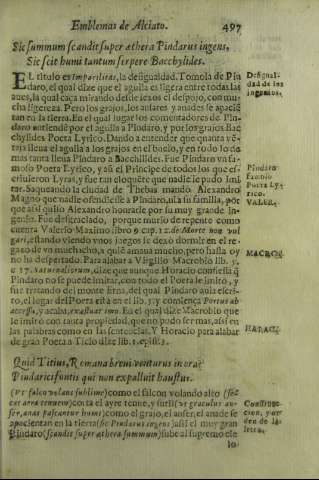 Emblemas de Alciato. 497
Sic summum scandit super æthera Pindarus ingens,
Sic scit humi tantum serpere Bacchylides.
EL titulo es Imparilitas, la desigualdad. Tomola de Pin
daro, el qual dize que el aguila es ligera entre todas las
aues, la qual caça mirando desde lexos el despojo, con mu-
cha ligereza. Pero los grajos, los ansares y anades se apaciē
tan en la tierra. En el qual lugar los comentadores de Pin-
daro entiendē por el aguila a Pindaro, y por los grajos Bac
chylides Poeta Lyrico. Dando a entender que quanta vē-
taja lleua el aguila a los grajos en el buelo, y en todo lo de
mas tanta lleua Pindaro a Bacchilides. Fue Pindaro va fa-
moso Poeta Lyrico, y aū el Principe de todos los que es-
criuieron Lyras, y fue tan eloquēte que nadie le pudo imi
tar. Saqueando la ciudad de Thebas mandò Alexandro
Magno que nadie ofendiesse a Pindaro, ni a su familia, por
que assi quiso Alexandro honrarle por su muy grande in-
genio. Fue desgraciado, porque murio de repente como
cuenta Valerio Maximo libro 9. cap. 12. de Morte non vul
gari, estando viendo vnos juegos se dexò dormir en el re-
gaço de vn muchacho, a quiē amaua mucho, pero hasta oy
no ha despertado. Para alabar a Virgilio Macrobio lib. 5.
c 17. Saturnaliorum, dize que aunque Horacio confiessa q̄
Pindaro no se puede imitar, con todo el Poeta le imitò, y
fue tratando del monte Etna, del qual Pindaro auia escri-
to, el lugar del Poeta està en el lib. 3. y comiença Portus ab
accessu, y acaba, exæstuat imo. En el qual dize Macrobio que
le imitò con tanta propiedad, que no pudo ser mas, assi en
las palabras como en las sentencias. Y Horacio para alabar
de gran Poeta a Ticio dize lib. 1. epist. 3.
Quid Titius, Romana breui venturus in ora?
Pindarici fontis qui non expalluit haustus.
(Vt falco volans sublime) como el falcon volando alto (se
cat aera tenuem) corta el ayre tenue, y sutil (vt graculus an
ser, anas pascuntur humi) como el grajo, el anser, el anade se
apacientan en la tierra (sic Pindarus ingens) assi el muy gran
Pindaro (scandit super æthera summum) sube al supremo cie
lo
Desigual-
dad de los
ingenios.
Pindaro
Famoso
Poeta Ly-
rico.
VALER.
MACRO.
HARAC.
Construc-
cion, y or
den de la
letra.